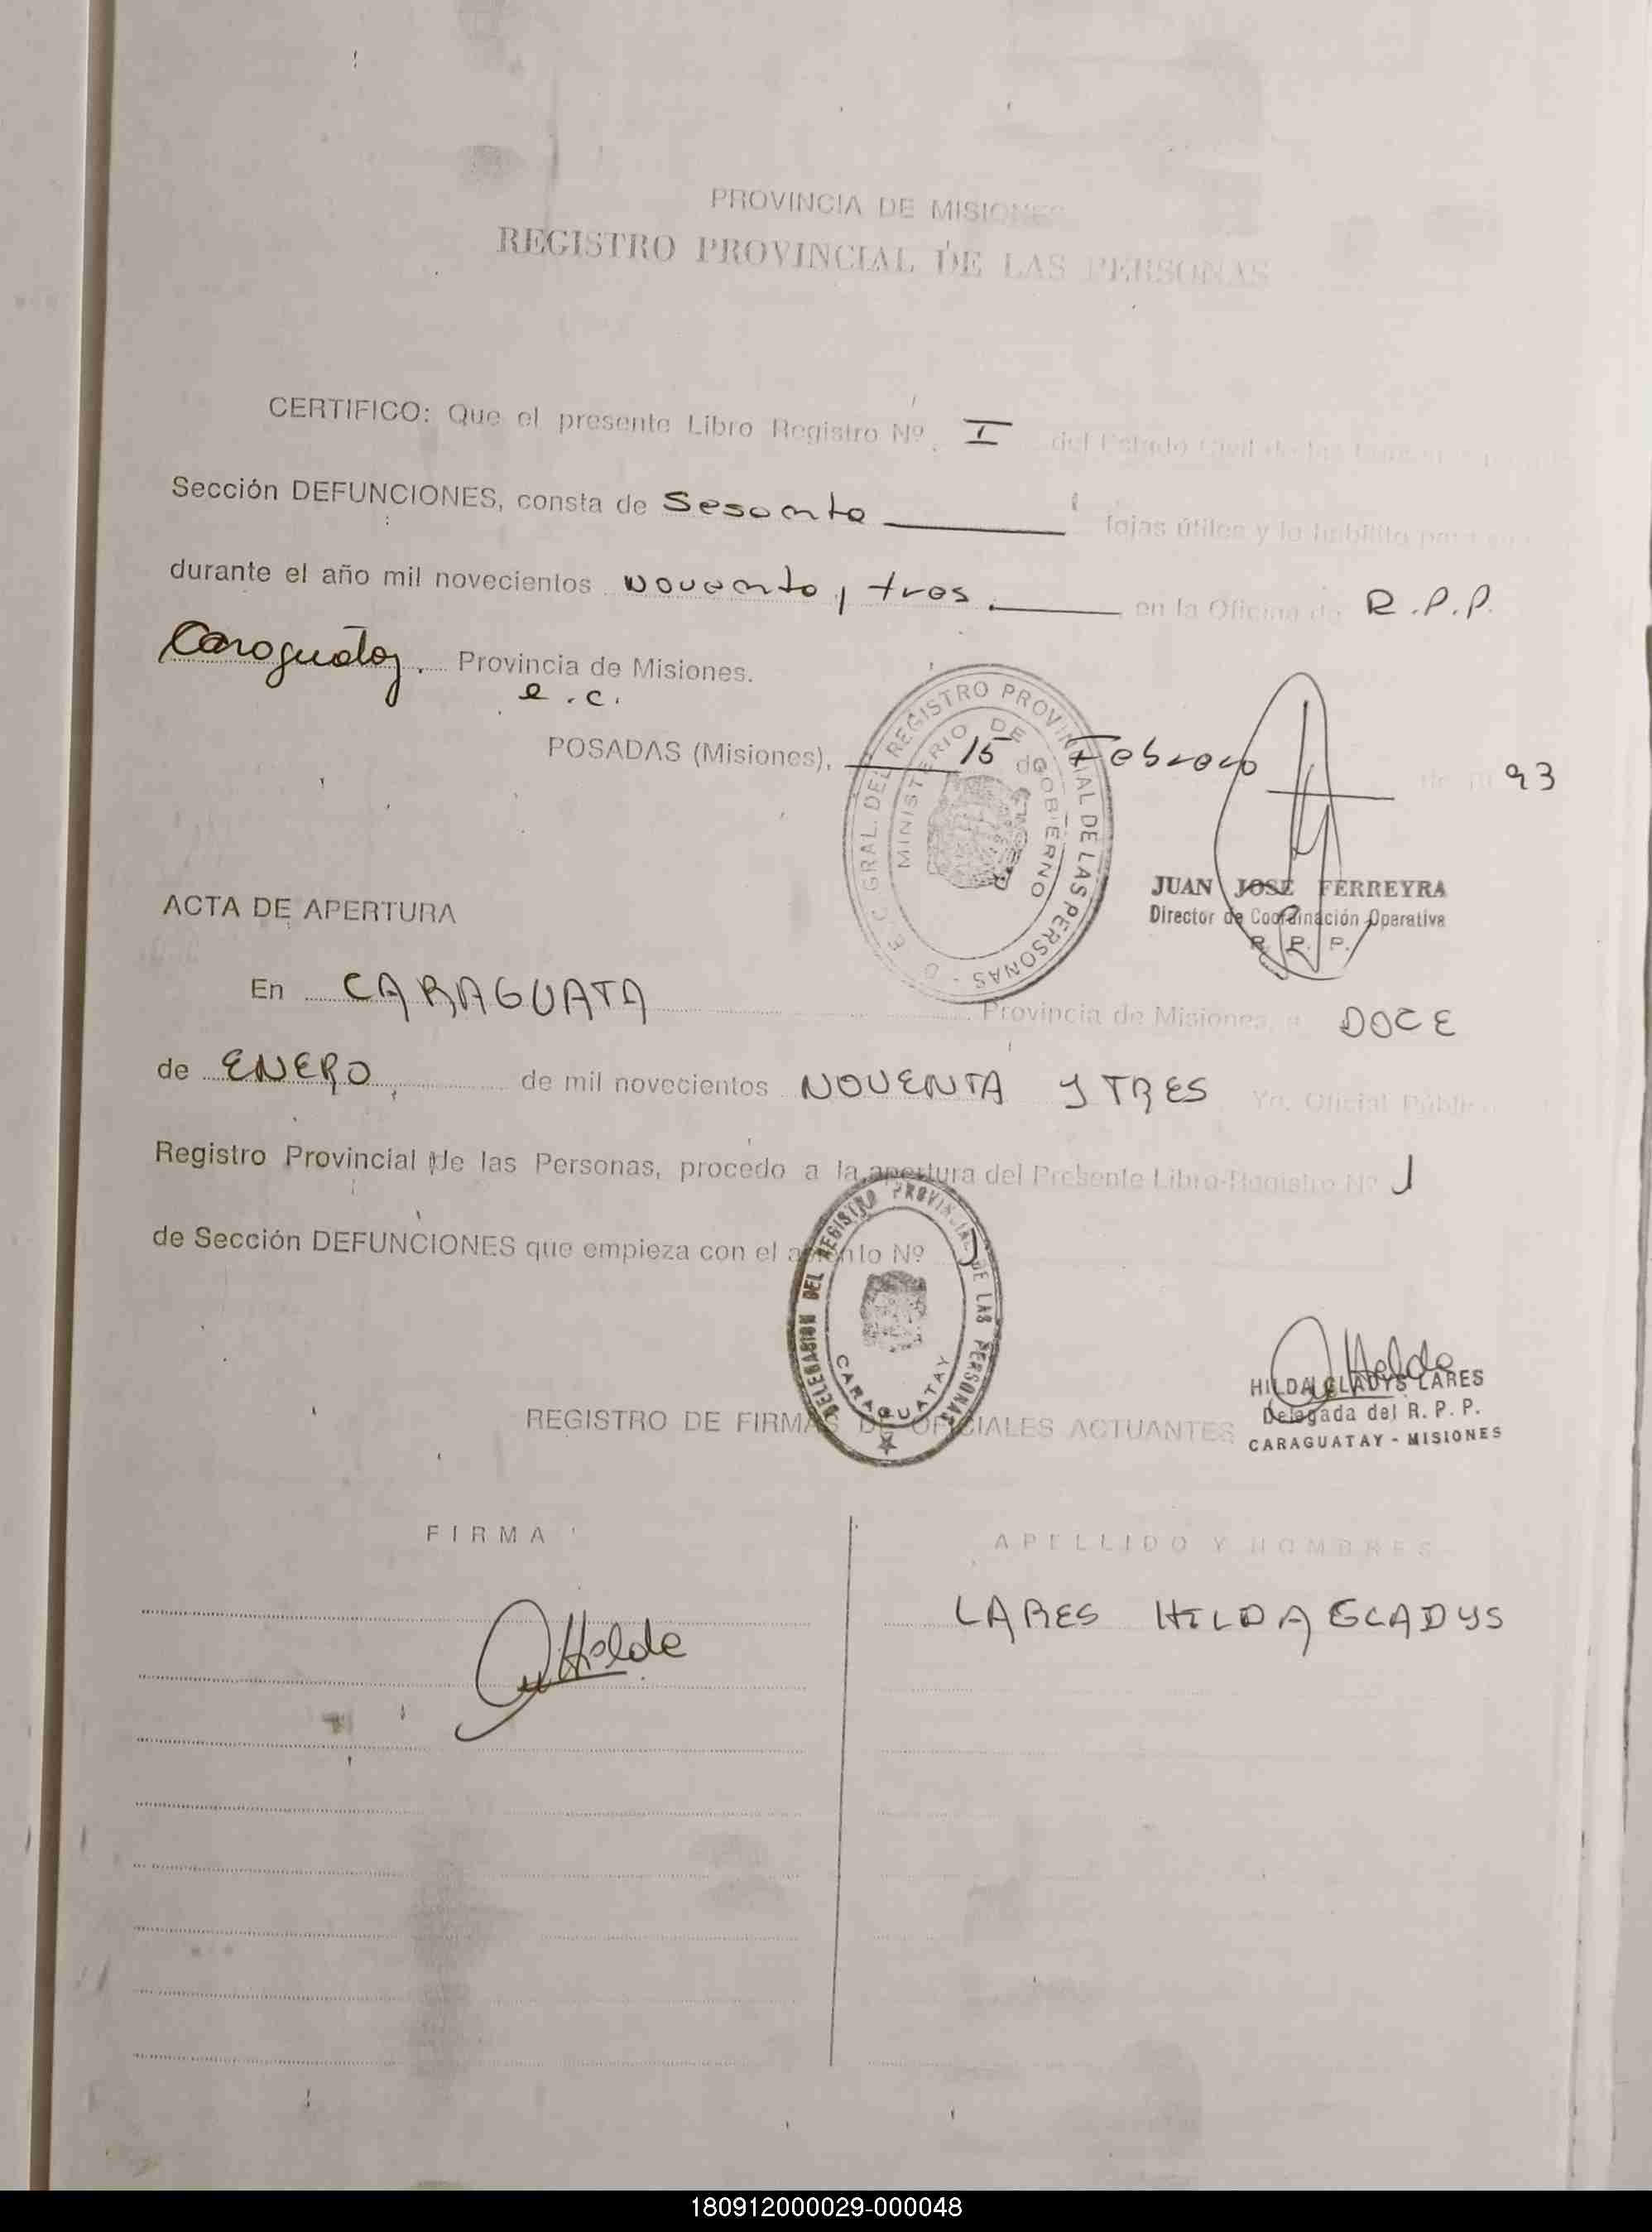 PROVINCIA DE MISIONES
REGISTRO PROVINCIAL DE LAS PERSONAS
CERTIFICO: Que el presente Libro Registro Nº I del Estado Civil de las
Sección DEFUNCIONES, consta de Sesenta fojas útiles y lo habilito para
durante el año mil novecientos noventa y tres en la Oficina de R.P.P.
Caraguatay. Provincia de Misiones.
e.c.
POSADAS (Misiones), 15 de Febrero de 19 93
D. E. C. GRAL. DEL REGISTRO PROVINCIAL DE LAS PERSONAS -
MINISTERIO DE GOBIERNO
JUAN JOSE FERREYRA
Director de Coordinación Operativa
R. P. P.
ACTA DE APERTURA
En CARAGUATA Provincia de Misiones, a DOCE
de ENERO, de mil novecientos NOVENTA Y TRES Yo, Oficial Público
Registro Provincial de las Personas, procedo a la apertura del Presente Libro-Registro Nº 1
de Sección DEFUNCIONES que empieza con el asiento Nº 1
DELEGASION DEL REGISTRO PROVINCIAL DE LAS PERSONAS
CARAGUATAY
Hilda
HILDA GLADYS LARES
Delegada del R. P. P.
CARAGUATAY - MISIONES
REGISTRO DE FIRMAS DE OFICIALES ACTUANTES
FIRMA APELLIDO Y NOMBRES
Hilda LARES HILDA GLADYS
180912000029-000048